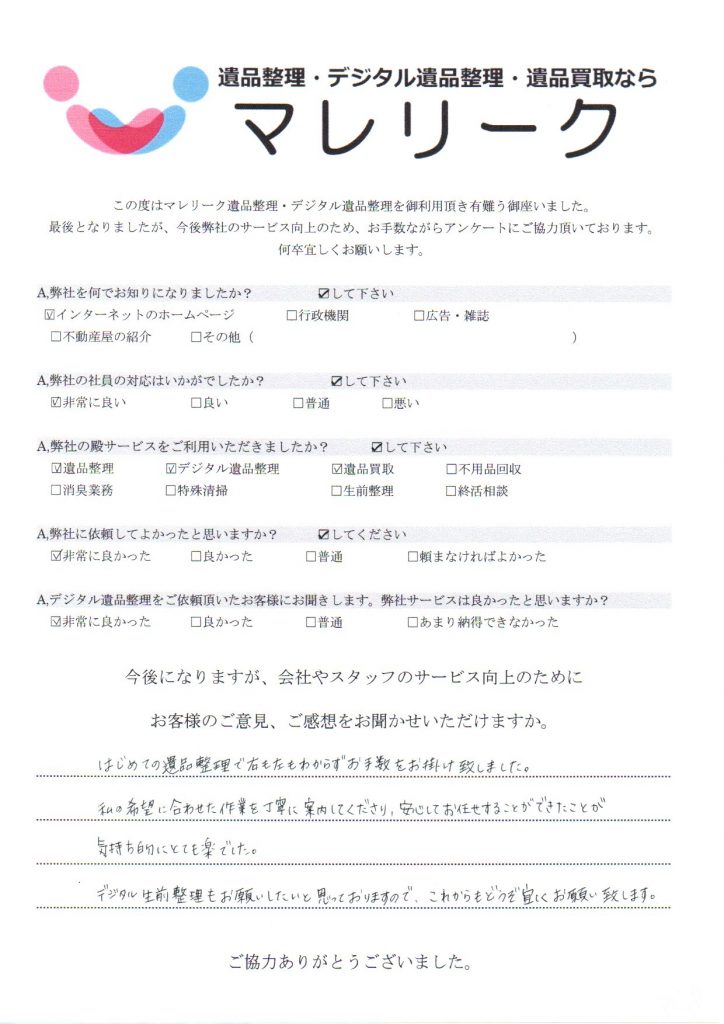 遺品整理・デジタル遺品整理・遺品買取なら
マレリーク
この度はマレリーク遺品整理・デジタル遺品整理を御利用頂き有難う御座いました。
最後となりましたが、今後弊社のサービス向上のため、お手数ながらアンケートにご協力頂いております。
何卒宜しくお願いします。
A,弊社を何でお知りになりましたか？ ☑して下さい
☑インターネットのホームページ □行政機関 □広告・雑誌
□不動産屋の紹介 □その他（ ）
A,弊社の社員の対応はいかがでしたか？ ☑して下さい
☑非常に良い □良い □普通 □悪い
A,弊社の殿サービスをご利用いただきましたか？ ☑して下さい
☑遺品整理 ☑デジタル遺品整理 ☑遺品買取 □不用品回収
□消臭業務 □特殊清掃 □生前整理 □終活相談
A,弊社に依頼してよかったと思いますか？ ☑してください
☑非常に良かった □良かった □普通 □頼まなければよかった
A,デジタル遺品整理をご依頼頂いたお客様にお聞きします。弊社サービスは良かったと思いますか？
☑非常に良かった □良かった □普通 □あまり納得できなかった
今後になりますが、会社やスタッフのサービス向上のために
お客様のご意見、ご感想をお聞かせいただけますか。
はじめての遺品整理で右も左もわからずお手数をお掛け致しました。
私の希望に合わせた作業を丁寧に案内してくださり、安心してお任せすることができたことが
気持ち的にとても楽でした。
デジタル生前整理もお願いしたいと思っておりますので、これからもどうぞ宜しくお願い致します。
ご協力ありがとうございました。